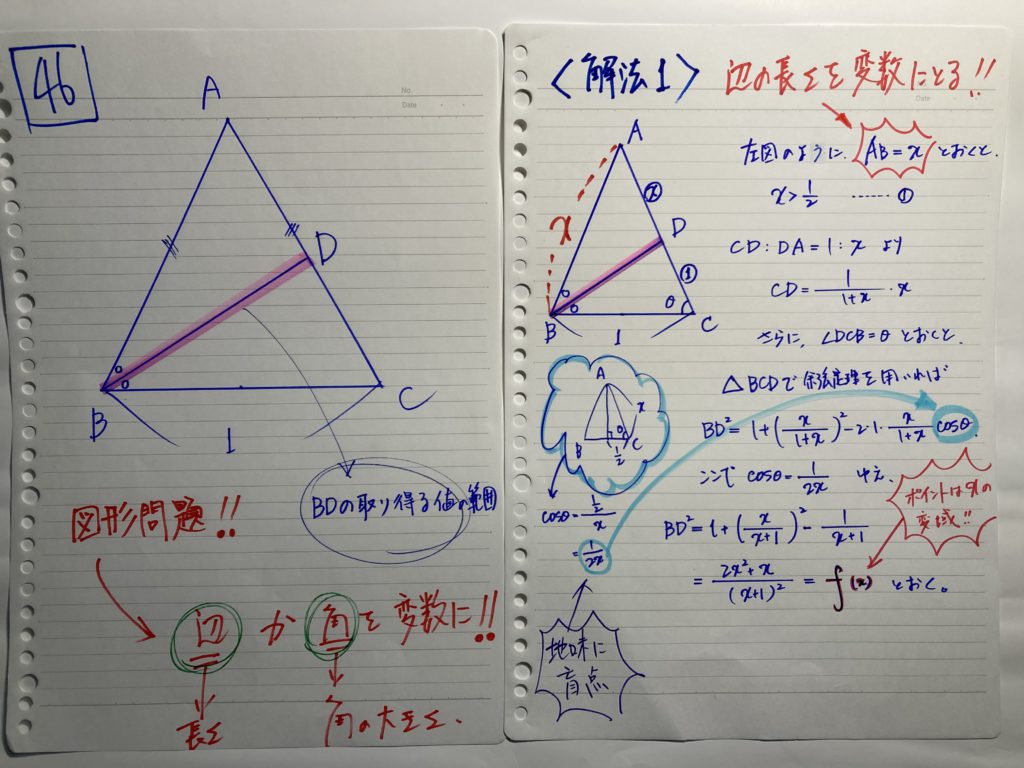 46
No.
Date
A
D
B
C
1
BDの取り得る値の範囲
図形問題!!
辺 か 角 を 変数に!!
長さ
角の大きさ.
<解法1> 辺の長さを変数にとる!!
Date
A
x
ⓧ
D
①
θ
B
1
C
左図のように, AB=x とおくと,
x>1/2 ...... ①
CD:DA=1:x より
CD=1/(1+x)・x
さらに, ∠DCB=θ とおくと,
△BCDで余弦定理を用いれば
BD²=1+(x/(1+x))²-2・1・x/(1+x) cosθ.
ここで cosθ=1/2x ゆえ,
BD²=1+(x/(x+1))²-1/(x+1)
=(2x²+x)/(x+1)²=f(x) とおく。
ポイントはxの
変域!!
A
x
B
θ
C
1/2
cosθ=(1/2)/x
=1/2x
地味に
盲点